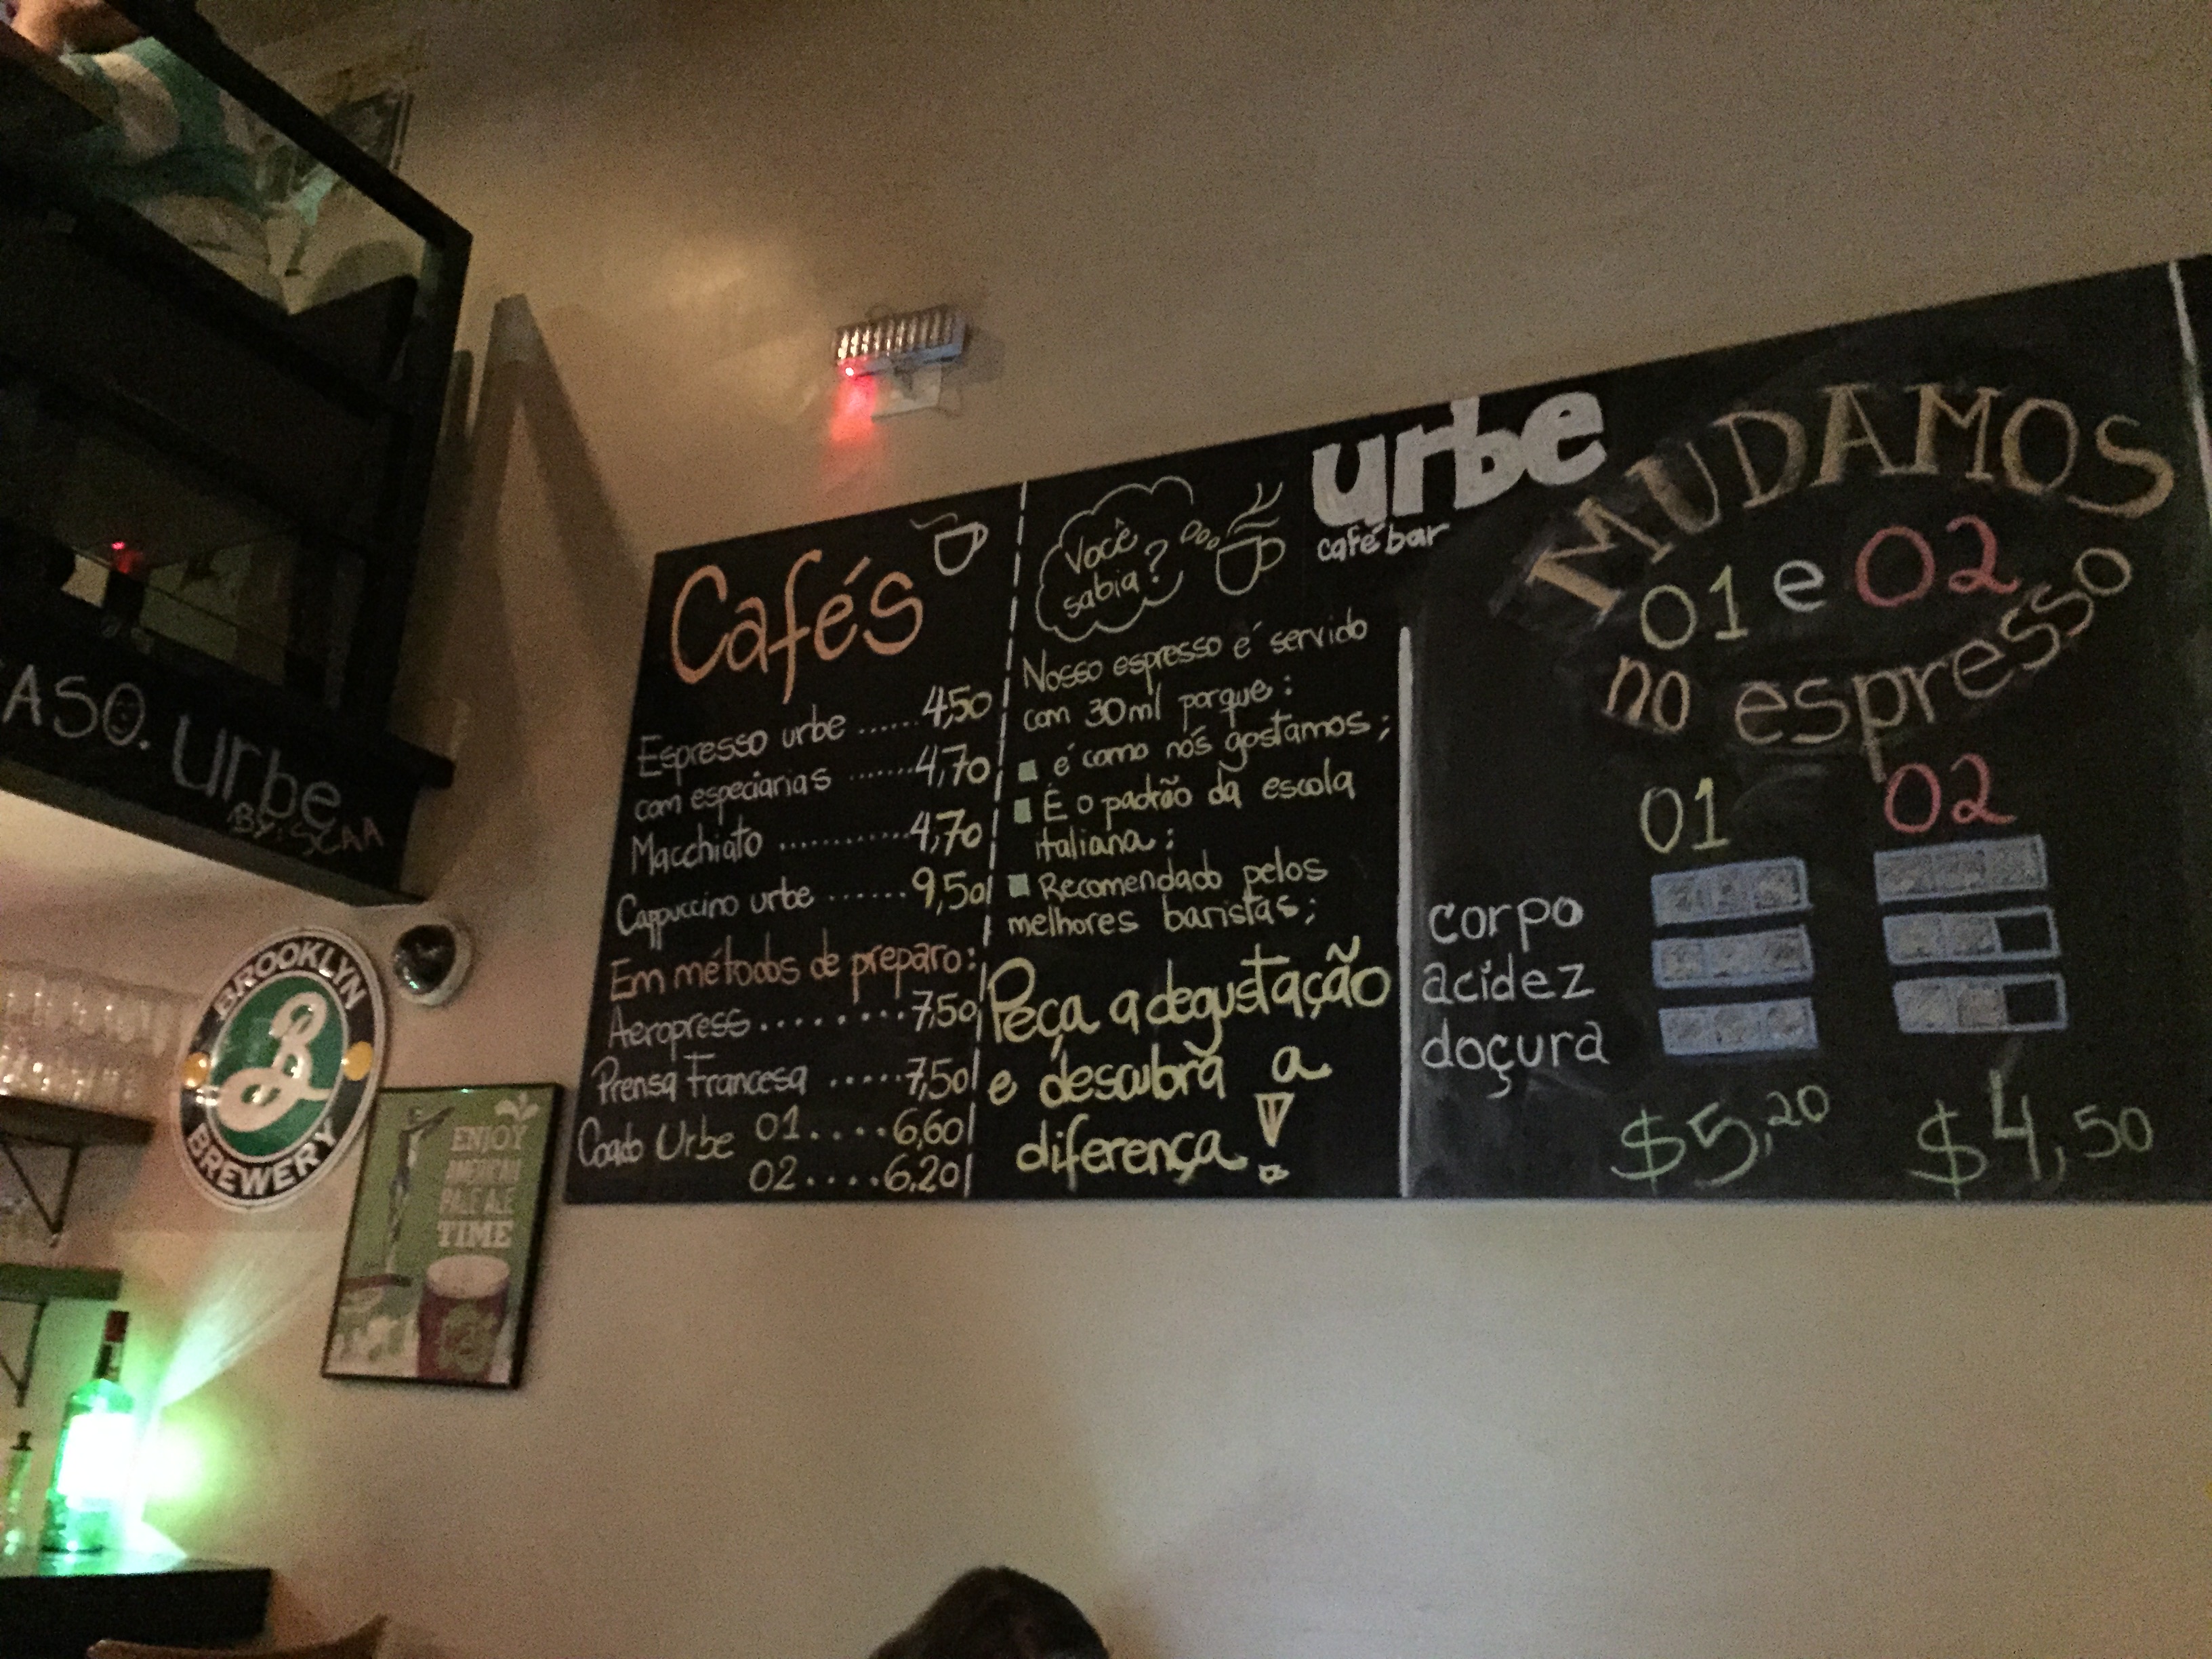 ASO. urbe
BY: SCAA
BROOKLYN
B
BREWERY
ENJOY
AMERICAN
PALE ALE
TIME
Cafés
Espresso urbe ...... 4,50
com especiarias ....... 4,70
Macchiato .......... 4,70
Cappuccino urbe ...... 9,50
Em métodos de preparo:
Aeropress ........ 7,50
Prensa Francesa ..... 7,50
Coado Urbe 01 .... 6,60
02 .... 6,20
Você
sabia?
Nosso espresso é servido
com 30ml porque:
é como nós gostamos;
É o padrão da escola
italiana;
Recomendado pelos
melhores baristas;
Peça a degustação
e descubra a
diferença!
urbe
café bar
MUDAMOS
01 e 02
no espresso
01 02
corpo
acidez
doçura
$5,20 $4,50